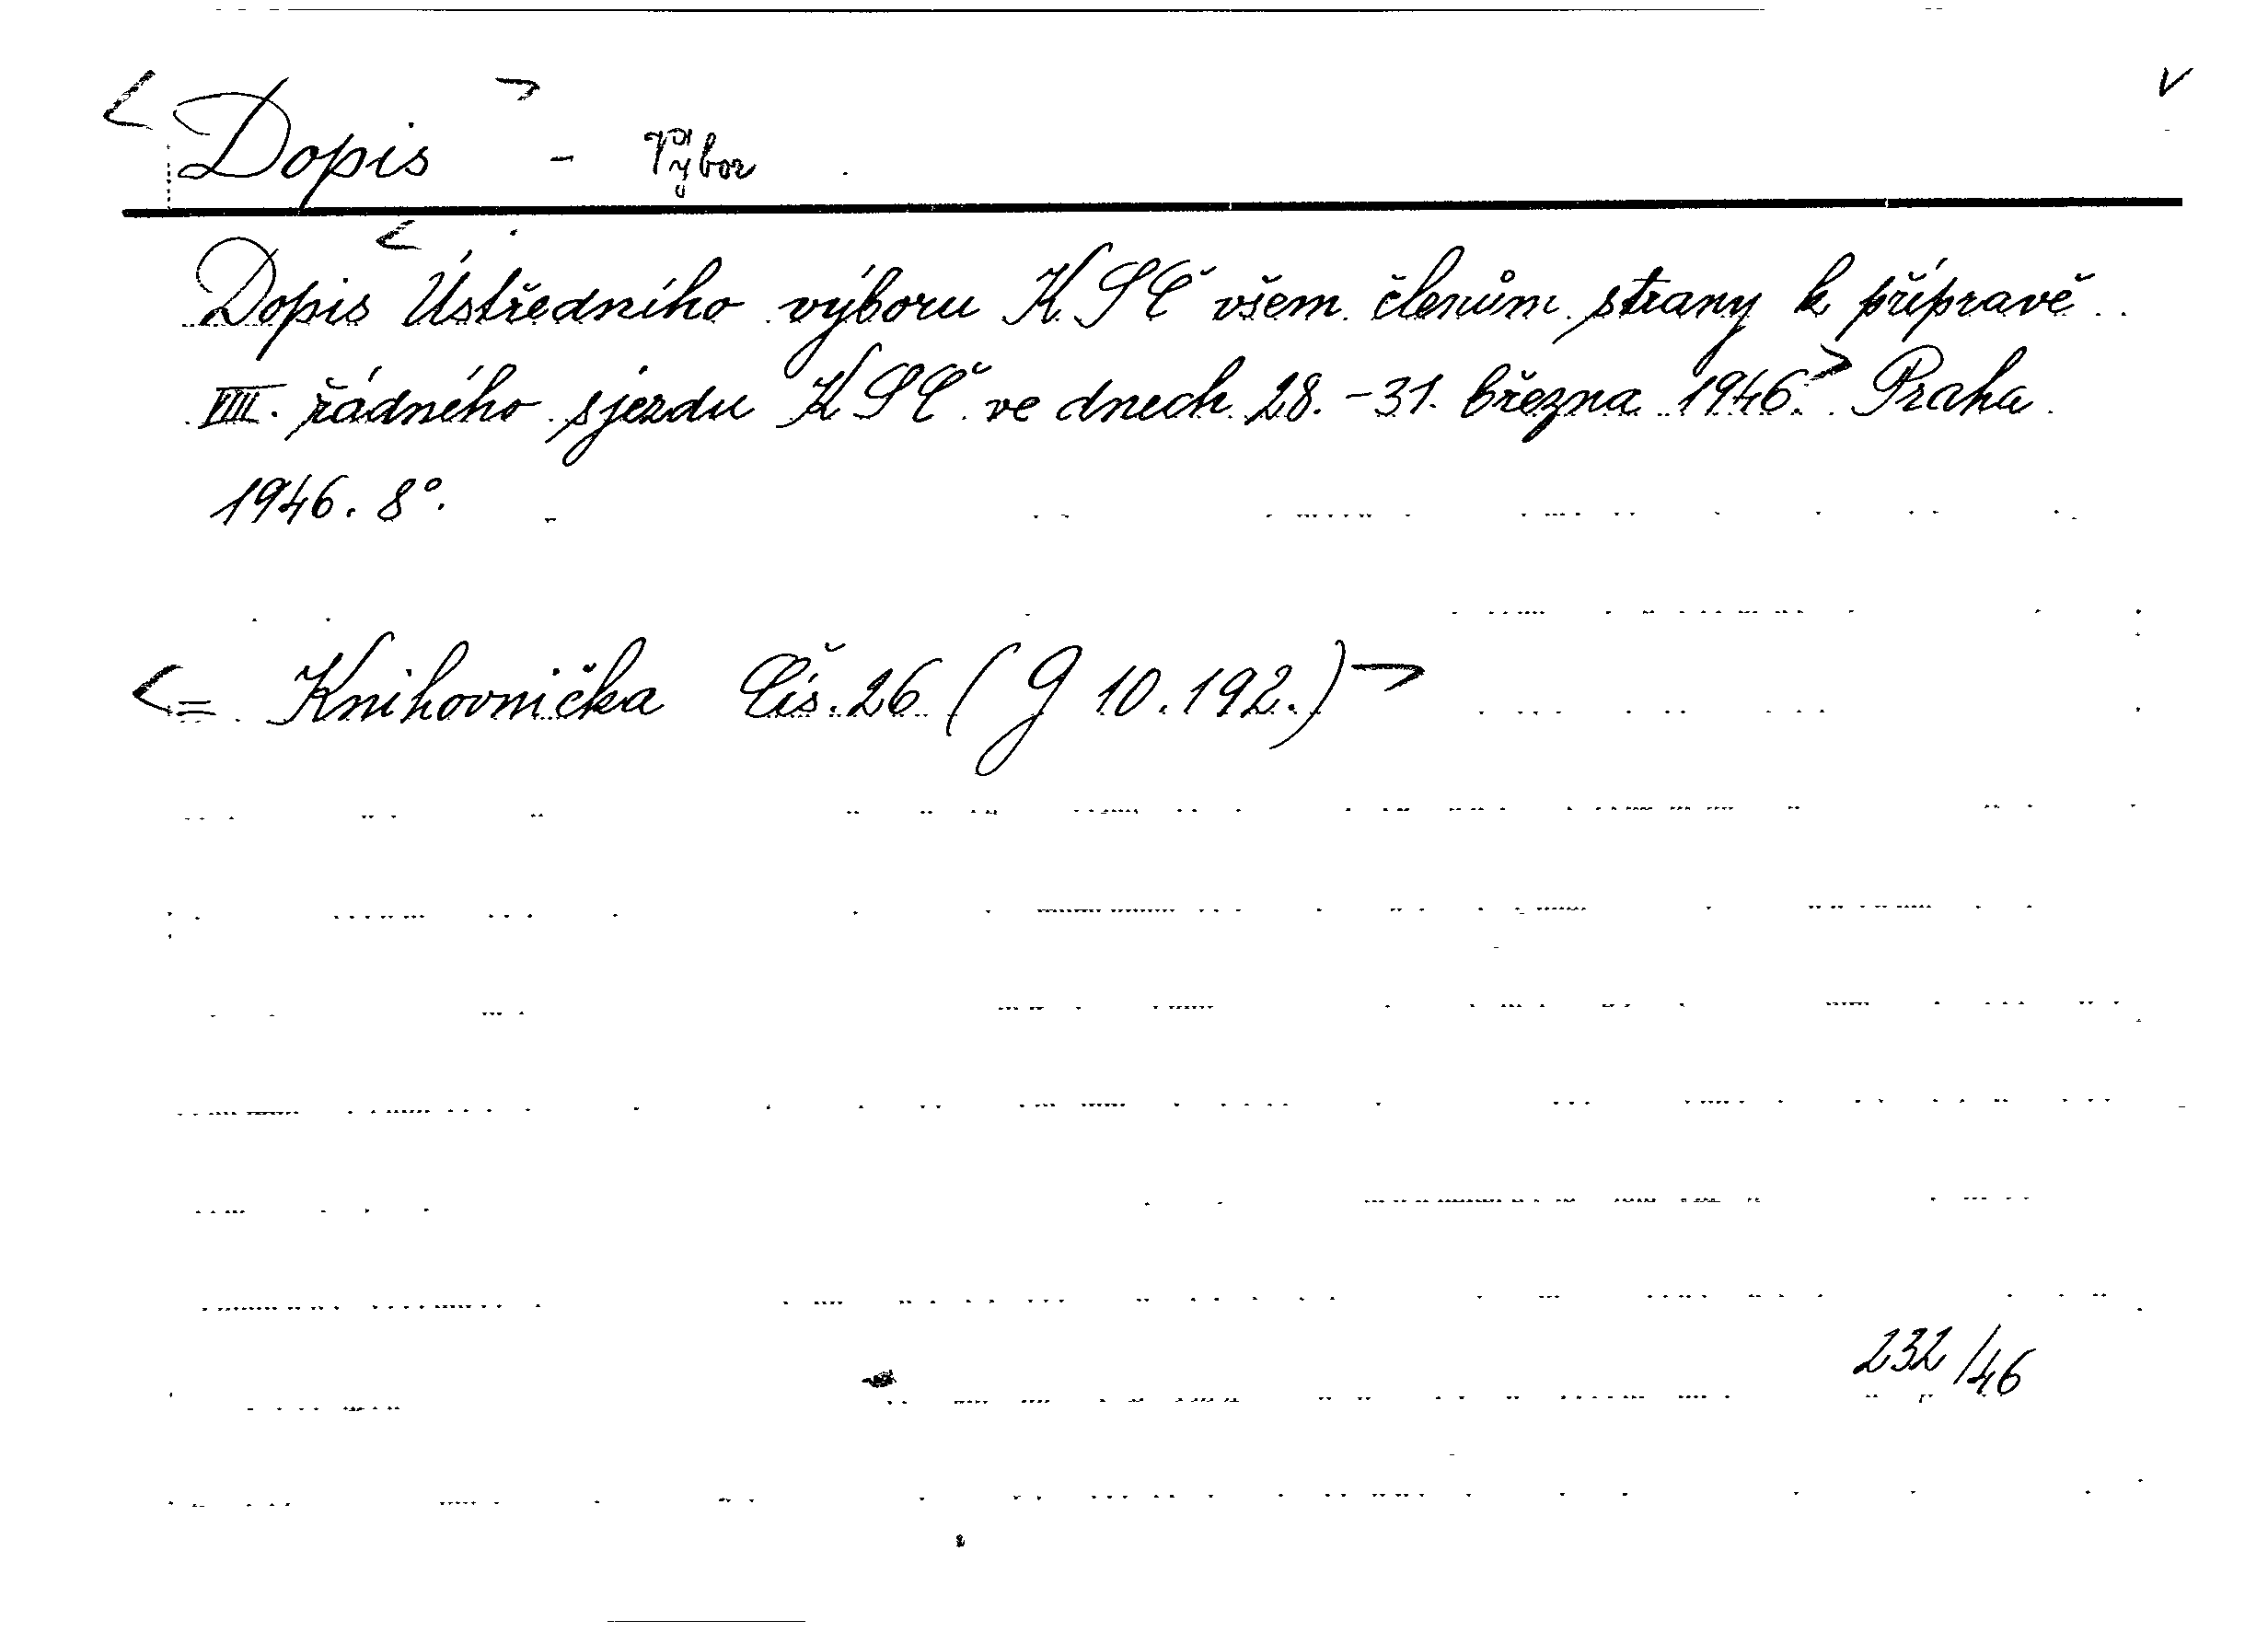 <Dopis> - Výbor v
Dopis <Ústředního výboru KSČ všem členům strany k přípravě
VIII. řádného sjezdu KSČ ve dnech 28.-31. března 1946.> Praha
1946. 8°.
<= Knihovnička Čís. 26 (G 10.192.)>
232/46